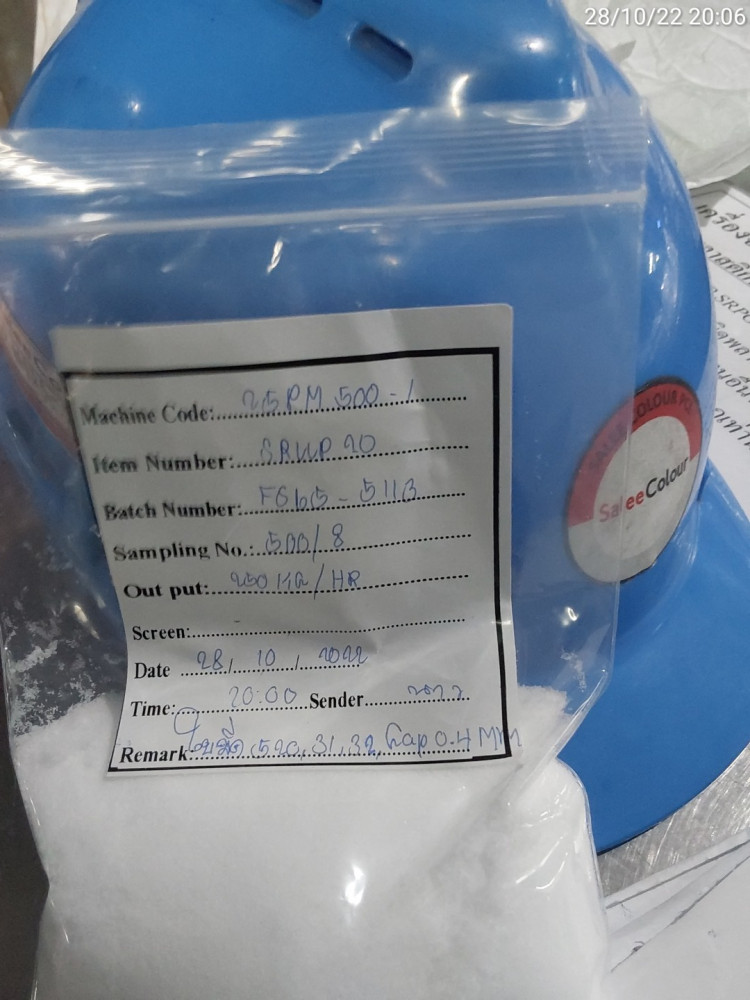 28/10/22 20:06
Machine Code: 25PM 500-1
Item Number: SRWP 20
Batch Number: FG65-511B
Sampling No.: 500/8
Out put: 250 KG/HR
Screen: -
Date 28/10/2022
Time: 20:00 Sender
Remark: ใบมีด 31, 32, Gap 0.4 MM
SALEE COLOUR PCL
SaleeColour